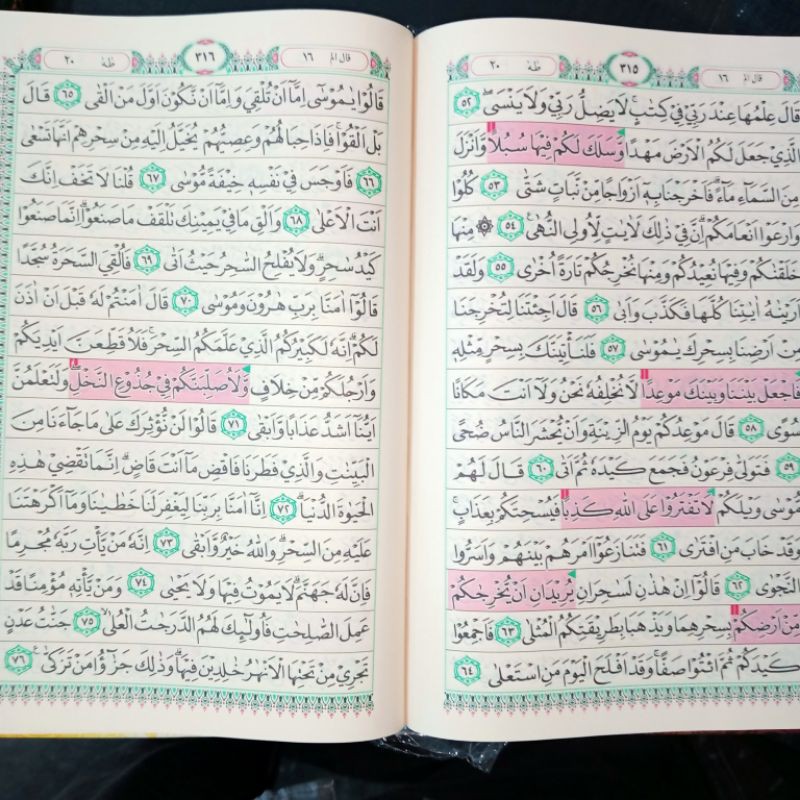 قال الم ١٦
٣١٥
طٰهٰ ٢٠
قَالَ عِلْمُهَا عِنْدَ رَبِّيْ فِيْ كِتٰبٍۚ لَا يَضِلُّ رَبِّيْ وَلَا يَنْسَىۖ ٥٢
الَّذِيْ جَعَلَ لَكُمُ الْاَرْضَ مَهْدًا وَّسَلَكَ لَكُمْ فِيْهَا سُبُلًا وَّاَنْزَلَ
مِنَ السَّمَاۤءِ مَاۤءًۗ فَاَخْرَجْنَا بِهٖٓ اَزْوَاجًا مِّنْ نَّبَاتٍ شَتّٰى ٥٣ كُلُوْا
وَارْعَوْا اَنْعَامَكُمْۗ اِنَّ فِيْ ذٰلِكَ لَاٰيٰتٍ لِّاُولِى النُّهٰى ٥٤ ۞ مِنْهَا
خَلَقْنٰكُمْ وَفِيْهَا نُعِيْدُكُمْ وَمِنْهَا نُخْرِجُكُمْ تَارَةً اُخْرٰى ٥٥ وَلَقَدْ
اَرَيْنٰهُ اٰيٰتِنَا كُلَّهَا فَكَذَّبَ وَاَبٰى ٥٦ قَالَ اَجِئْتَنَا لِتُخْرِجَنَا
مِنْ اَرْضِنَا بِسِحْرِكَ يٰمُوْسٰى ٥٧ فَلَنَأْتِيَنَّكَ بِسِحْرٍ مِّثْلِهٖ
فَاجْعَلْ بَيْنَنَا وَبَيْنَكَ مَوْعِدًا لَّا نُخْلِفُهٗ نَحْنُ وَلَآ اَنْتَ مَكَانًا
سُوًى ٥٨ قَالَ مَوْعِدُكُمْ يَوْمُ الزِّيْنَةِ وَاَنْ يُّحْشَرَ النَّاسُ ضُحًى
٥٩ فَتَوَلّٰى فِرْعَوْنُ فَجَمَعَ كَيْدَهٗ ثُمَّ اَتٰى ٦٠ قَالَ لَهُمْ
مُّوْسٰى وَيْلَكُمْ لَا تَفْتَرُوْا عَلَى اللّٰهِ كَذِبًا فَيُسْحِتَكُمْ بِعَذَابٍۚ
وَقَدْ خَابَ مَنِ افْتَرٰى ٦١ فَتَنَازَعُوْٓا اَمْرَهُمْ بَيْنَهُمْ وَاَسَرُّوا
النَّجْوٰى ٦٢ قَالُوْٓا اِنْ هٰذٰنِ لَسٰحِرٰنِ يُرِيْدٰنِ اَنْ يُّخْرِجٰكُمْ
مِّنْ اَرْضِكُمْ بِسِحْرِهِمَا وَيَذْهَبَا بِطَرِيْقَتِكُمُ الْمُثْلٰى ٦٣ فَاَجْمِعُوْا
كَيْدَكُمْ ثُمَّ ائْتُوْا صَفًّاۚ وَقَدْ اَفْلَحَ الْيَوْمَ مَنِ اسْتَعْلٰى ٦٤
قال الم ١٦
٣١٦
طٰهٰ ٢٠
قَالُوْا يٰمُوْسٰٓى اِمَّآ اَنْ تُلْقِيَ وَاِمَّآ اَنْ نَّكُوْنَ اَوَّلَ مَنْ اَلْقٰى ٦٥ قَالَ
بَلْ اَلْقُوْاۚ فَاِذَا حِبَالُهُمْ وَعِصِيُّهُمْ يُخَيَّلُ اِلَيْهِ مِنْ سِحْرِهِمْ اَنَّهَا تَسْعٰى
٦٦ فَاَوْجَسَ فِيْ نَفْسِهٖ خِيْفَةً مُّوْسٰى ٦٧ قُلْنَا لَا تَخَفْ اِنَّكَ
اَنْتَ الْاَعْلٰى ٦٨ وَاَلْقِ مَا فِيْ يَمِيْنِكَ تَلْقَفْ مَا صَنَعُوْاۗ اِنَّمَا صَنَعُوْا
كَيْدُ سٰحِرٍۗ وَلَا يُفْلِحُ السَّاحِرُ حَيْثُ اَتٰى ٦٩ فَاُلْقِيَ السَّحَرَةُ سُجَّدًا
قَالُوْٓا اٰمَنَّا بِرَبِّ هٰرُوْنَ وَمُوْسٰى ٧٠ قَالَ اٰمَنْتُمْ لَهٗ قَبْلَ اَنْ اٰذَنَ
لَكُمْۗ اِنَّهٗ لَكَبِيْرُكُمُ الَّذِيْ عَلَّمَكُمُ السِّحْرَۚ فَلَاُقَطِّعَنَّ اَيْدِيَكُمْ
وَاَرْجُلَكُمْ مِّنْ خِلَافٍ وَّلَاُصَلِّبَنَّكُمْ فِيْ جُذُوْعِ النَّخْلِۖ وَلَتَعْلَمُنَّ
اَيُّنَآ اَشَدُّ عَذَابًا وَّاَبْقٰى ٧١ قَالُوْا لَنْ نُّؤْثِرَكَ عَلٰى مَا جَاۤءَنَا مِنَ
الْبَيِّنٰتِ وَالَّذِيْ فَطَرَنَا فَاقْضِ مَآ اَنْتَ قَاضٍۗ اِنَّمَا تَقْضِيْ هٰذِهِ
الْحَيٰوةَ الدُّنْيَاۗ ٧٢ اِنَّآ اٰمَنَّا بِرَبِّنَا لِيَغْفِرَ لَنَا خَطٰيٰنَا وَمَآ اَكْرَهْتَنَا
عَلَيْهِ مِنَ السِّحْرِۗ وَاللّٰهُ خَيْرٌ وَّاَبْقٰى ٧٣ اِنَّهٗ مَنْ يَّأْتِ رَبَّهٗ مُجْرِمًا
فَاِنَّ لَهٗ جَهَنَّمَۗ لَا يَمُوْتُ فِيْهَا وَلَا يَحْيٰى ٧٤ وَمَنْ يَّأْتِهٖ مُؤْمِنًا قَدْ
عَمِلَ الصّٰلِحٰتِ فَاُولٰۤىِٕكَ لَهُمُ الدَّرَجٰتُ الْعُلٰىۙ ٧٥ جَنّٰتُ عَدْنٍ
تَجْرِيْ مِنْ تَحْتِهَا الْاَنْهٰرُ خٰلِدِيْنَ فِيْهَاۗ وَذٰلِكَ جَزٰۤؤُا مَنْ تَزَكّٰى ٧٦